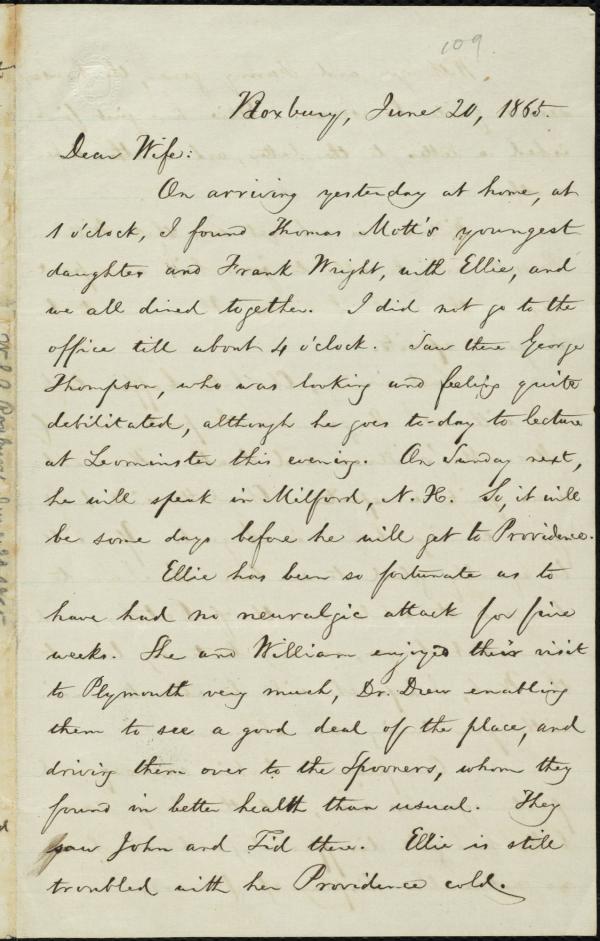 109.
Roxbury, June 20, 1865.
Dear Wife:
On arriving yesterday at home, at
1 o'clock, I found Thomas Mott's youngest
daughter and Frank Wright, with Ellie, and
we all dined together. I did not go to the
office till about 4 o'clock. Saw there George
Thompson, who was looking and feeling quite
debilitated, although he goes to-day to lecture
at Leominster this evening. On Sunday next,
he will speak in Milford, N. H. So, it will
be some days before he will get to Providence.
Ellie has been so fortunate as to
have had no neuralgic attack for five
weeks. She and William enjoyed their visit
to Plymouth very much, Dr. Drew enabling
them to see a good deal of the place, and
driving them over to the Spooners, whom they
found in better health than usual. They
saw John and Fid there. Ellie is still
troubled with her Providence cold.